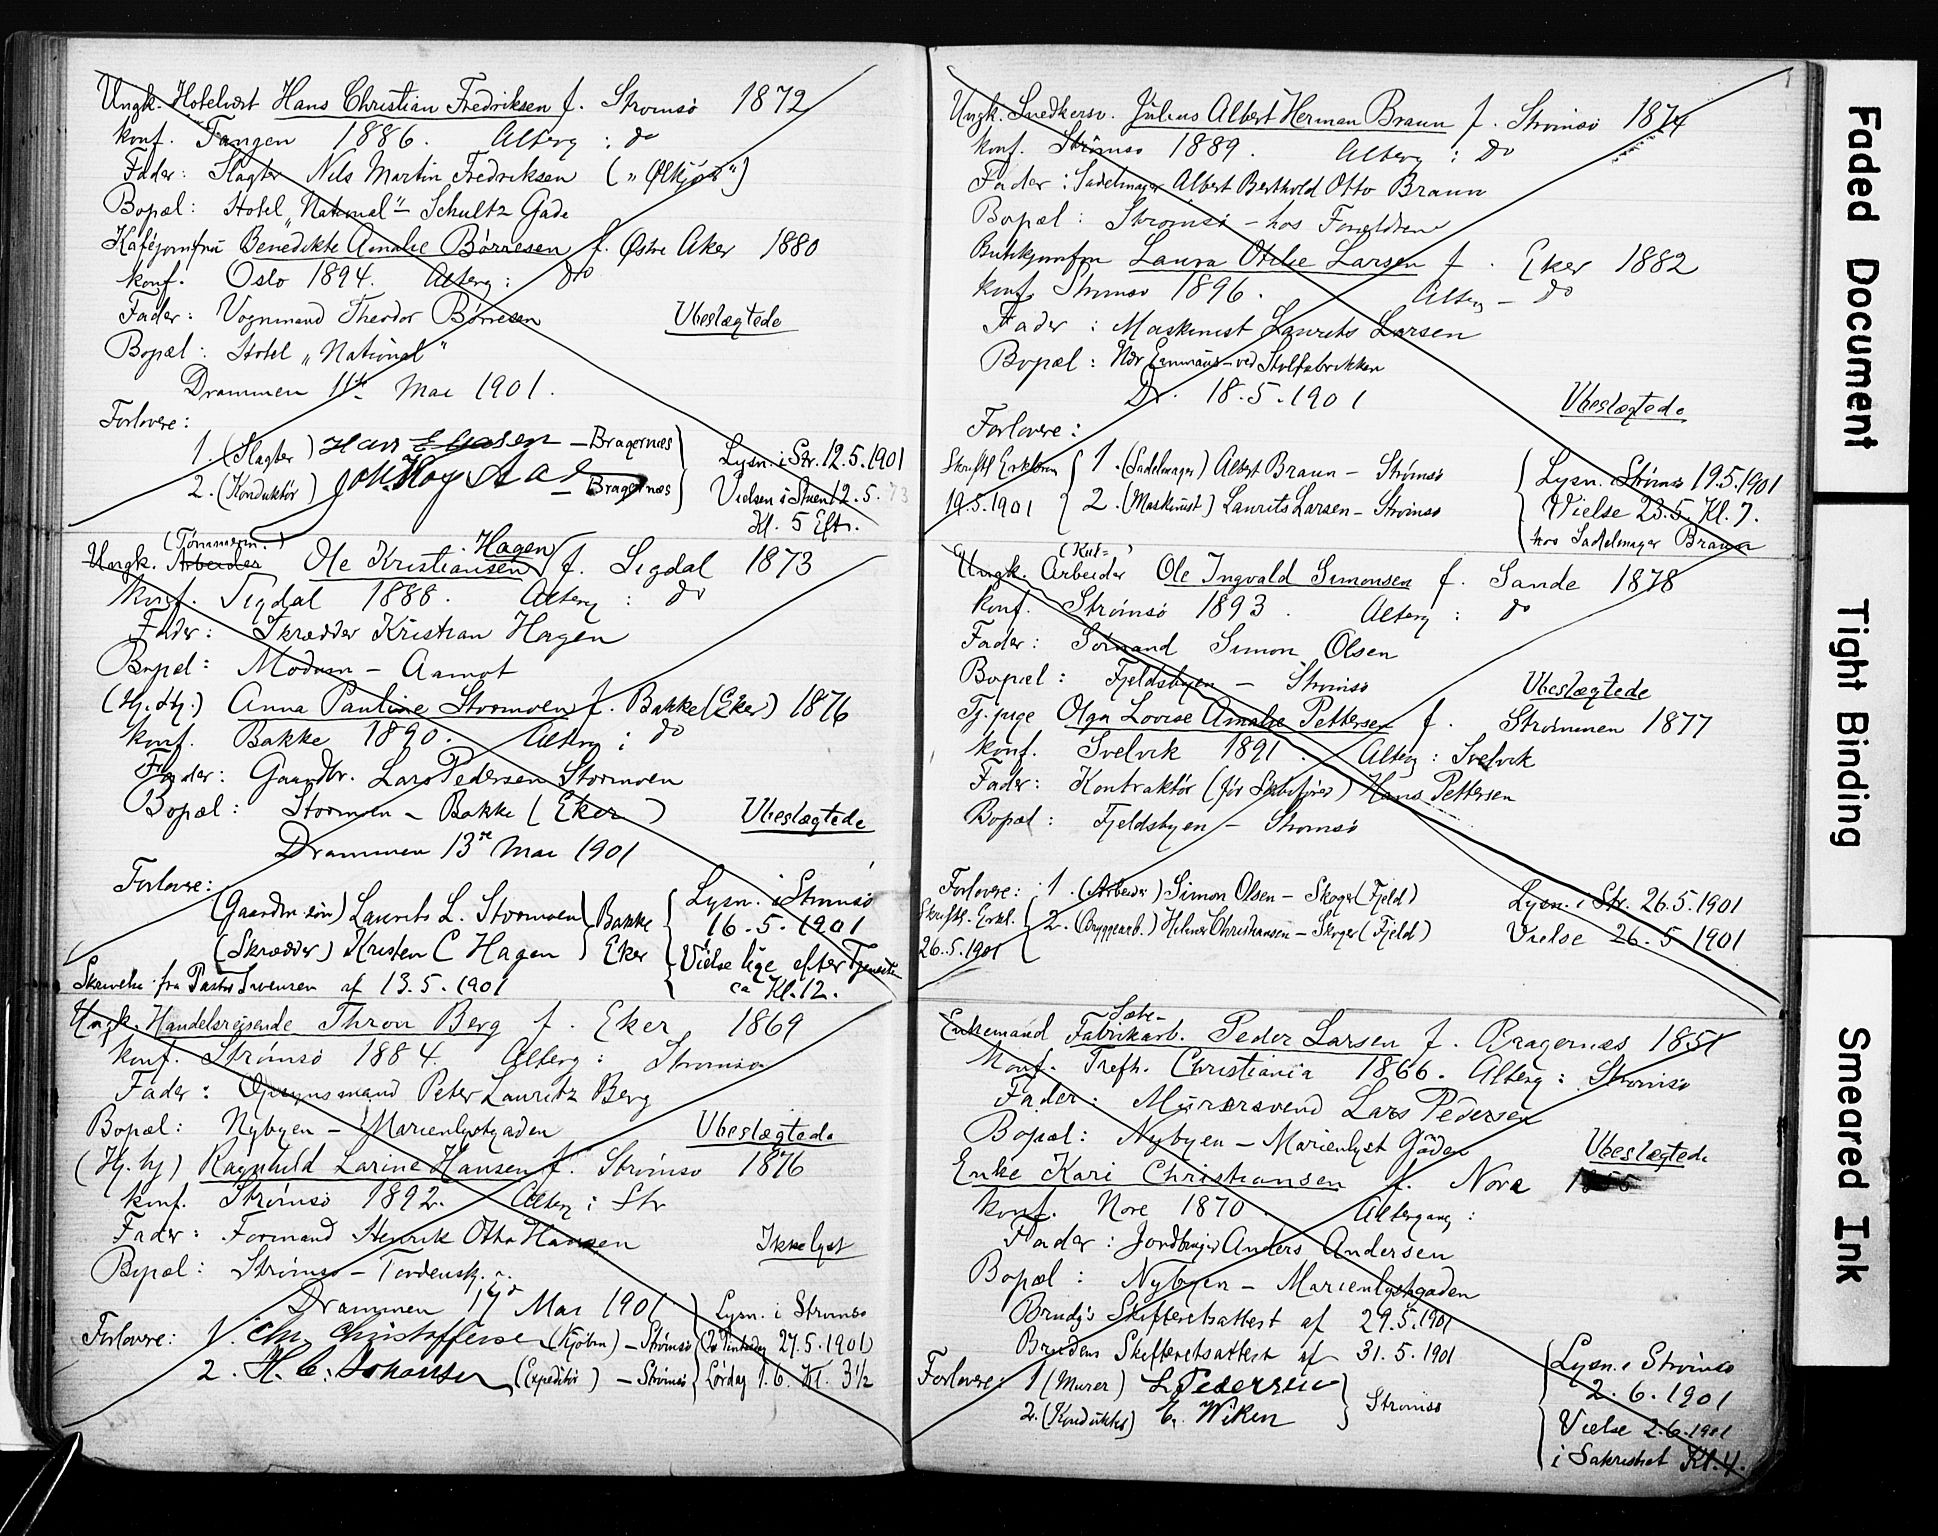 Ungk. Hotelvært Hans Christian Fredriksen f. Strømsø 1872
konf. Tangen 1886. Alterg : do
Fader: Slagter Nils Martin Fredriksen („Ølkjør")
Bopæl: Hotel „National" – Schultz Gade
Kaféjomfru Benedikte Amalie Børresen f. Østre Aker 1880
konf. Oslo 1894. Alterg : do
Fader: Vognmand Theodor Børresen Ubeslægtede
Bopæl: Hotel „National"
Drammen 11te Mai 1901.
Forlovere:
1. (Slagter) Hans – Bragernæs
2. (Konduktør) – Bragernæs
Lysn. i Str. 12.5.1901
Vielsen i Stuen 12.5.
Kl. 5 Eft.
(Tømmerm.) Hagen
Ungk. Arbeider Ole Kristiansen f. Sigdal 1873
konf. Sigdal 1888. Alterg : do
Fader: Skrædder Kristian Hagen
Bopæl: Modum – Aamot
(Hj. Hj.) Anna Pauline Stormoen f. Bakke (Eker) 1876
konf. Bakke 1890. Alterg : do
Fader: Gaardbr. Lars Pedersen Stormoen
Bopæl: Stormoen – Bakke (Eker) Ubeslægtede
Drammen 13de Mai 1901
Forlovere:
(Gaardbr. søn) Laurits L. Stormoen Bakke
(Skrædder) Kristen C Hagen Eker
Lysn. i Strømsø
16.5.1901
Vielse lige efter Tjenesten
ca Kl. 12.
Skrivelse fra Pastor Svensen af 13.5.1901
Ungk. Handelsreisende Thron Berg f. Eker 1869
konf. Strømsø 1884. Alterg : Strømsø
Fader: Opsynsmand Peter Lauritz Berg
Bopæl: Nybyen – Marienlystgaden Ubeslægtede
(Hj. hj) Ragnhild Larine Hansen f. Strømsø 1876
konf. Strømsø 1892. Alterg : Str
Fader: Formand Henrik Otto Hansen Ikke lyst
Bopæl: Strømsø – Tordensk.
Drammen 17de Mai 1901
Forlovere: 1. Chr. Christoffersen (Kjøbm) – Strømsø
2. H. C. Johansen (Expeditør) – Strømsø
Lysn. i Strømsø
(2. Pintsedag 27.5.1901)
Lørdag 1.6. Kl. 3½
Ungk. Snedkersv. Julius Albert Herman Braun f. Strømsø 1874
konf. Strømsø 1889. Alterg : do
Fader: Sadelmager Albert Berthold Otto Braun
Bopæl: Strømsø – hos Forældrene
Butikjomfru Laura Otilie Larsen f. Eker 1882
konf. Strømsø 1896. Alterg – do
Fader : Maskinist Laurits Larsen
Bopæl: Ndr Emmaus – ved Stolfabrikken
Dr. 18.5.1901 Ubeslægtede
Forlovere:
Skriftl. Erklæring
19.5.1901
1. (Sadelmager) Albert Braun – Strømsø
2. (Maskinist) Laurits Larsen – Strømsø
Lysn. Strømsø 19.5.1901
Vielse 23.5. Kl. 7.
hos Sadelmager Braun
Ungk. Arbeider Ole Ingvald Simonsen f. Sande 1878
konf. Strømsø 1893. Alterg : do
Fader: Sømand Simon Olsen
Bopæl: Fjeldsbyen – Strømsø Ubeslægtede
Tj. pige Olga Lovise Amalie Pettersen f. Strømmen 1877
konf. Svelvik 1891. Alterg : Svelvik
Fader: Kontraktør Hans Pettersen
Bopæl: Fjeldsbyen – Strømsø
Forlovere: 1. (Arbeider) Simon Olsen – Skoger (Fjeld)
Skriftl. Erkl.
26.5.1901
2. (Bryggearb.) Christiansen – Skoger (Fjeld)
Lysn. i Str. 26.5.1901
Vielse 26.5.1901
Enkemand Fabrikarb. Peder Larsen f. Bragernæs 1851
Konf. Trefh. Christiania 1866. Alterg : Strømsø
Fader: Murersvend Lars Pedersen
Bopæl: Nybyen – Marienlyst Gaden Ubeslægtede
Enke Kari Christiansen f. Nore
konf. Nore 1870. Altergang :
Fader : Jordbruger Anders Andersen
Bopæl : Nybyen – Marienlystgaden
Brudg's Skifteretsattest af 29.5.1901
Brudens Skifteretsattest af 31.5.1901
Forlovere: 1 (Murer) L. Pedersen
2. (Konduktør) C. Wiken
Strømsø
Lysn. i Strømsø
2.6.1901
Vielse 2.6.1901
i Sakristiet Kl. 4.
Faded Document
Tight Binding
Smeared Ink